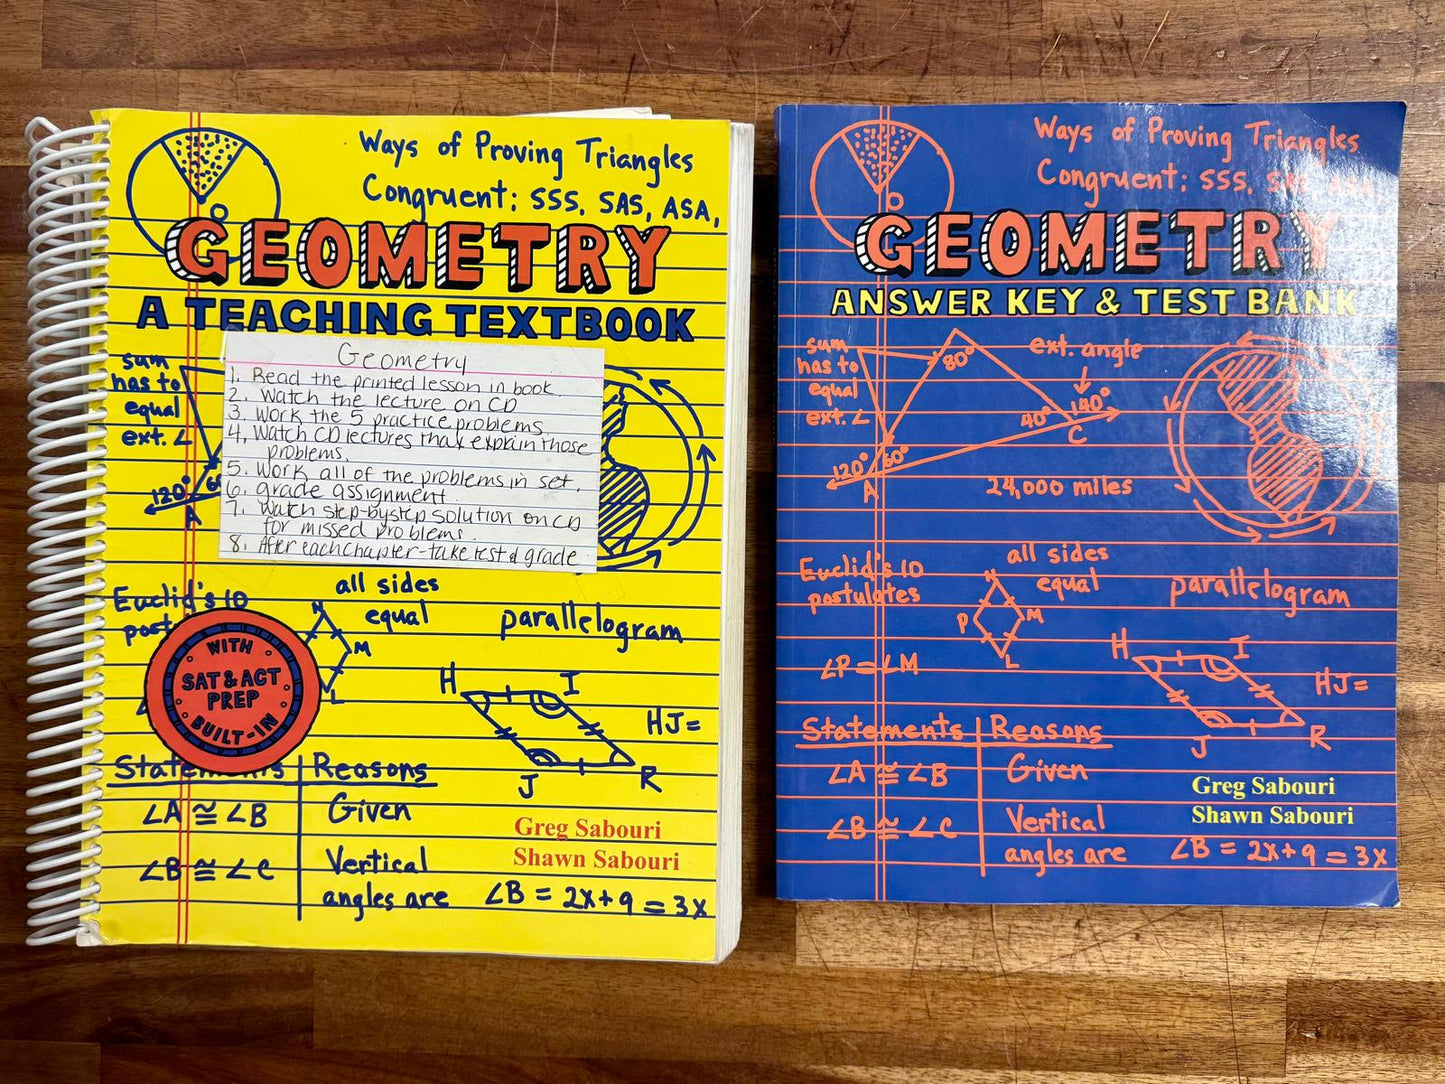 Ways of Proving Triangles
Congruent: SSS, SAS, ASA,
GEOMETRY
A TEACHING TEXTBOOK
sum
has to
equal
ext. ∠
120°
A
Geometry
1. Read the printed lesson in book.
2. Watch the lecture on CD
3. Work the 5 practice problems
4. Watch CD lectures that explain those
problems.
5. Work all of the problems in set.
6. grade assignment
7. Watch step-by step solution on CD
for missed problems.
8. After each chapter - take test & grade
Euclid's 10
post
all sides
equal
parallelogram
N
M
L
WITH
SAT & ACT
PREP
BUILT-IN
H
I
J
R
HJ=
Statements
Reasons
∠A ≅ ∠B
Given
∠B ≅ ∠C
Vertical
angles are
Greg Sabouri
Shawn Sabouri
∠B = 2x+9 = 3x
Ways of Proving Triangles
Congruent: SSS, SAS, ASA
GEOMETRY
ANSWER KEY & TEST BANK
sum
has to
equal
ext. ∠
80°
ext. angle
40°
140°
C
120°
60°
A
24,000 miles
Euclid's 10
postulates
all sides
equal
parallelogram
N
P
M
L
∠P = ∠M
H
I
J
R
HJ=
Statements
Reasons
∠A ≅ ∠B
Given
∠B ≅ ∠C
Vertical
angles are
Greg Sabouri
Shawn Sabouri
∠B = 2x+9 = 3x